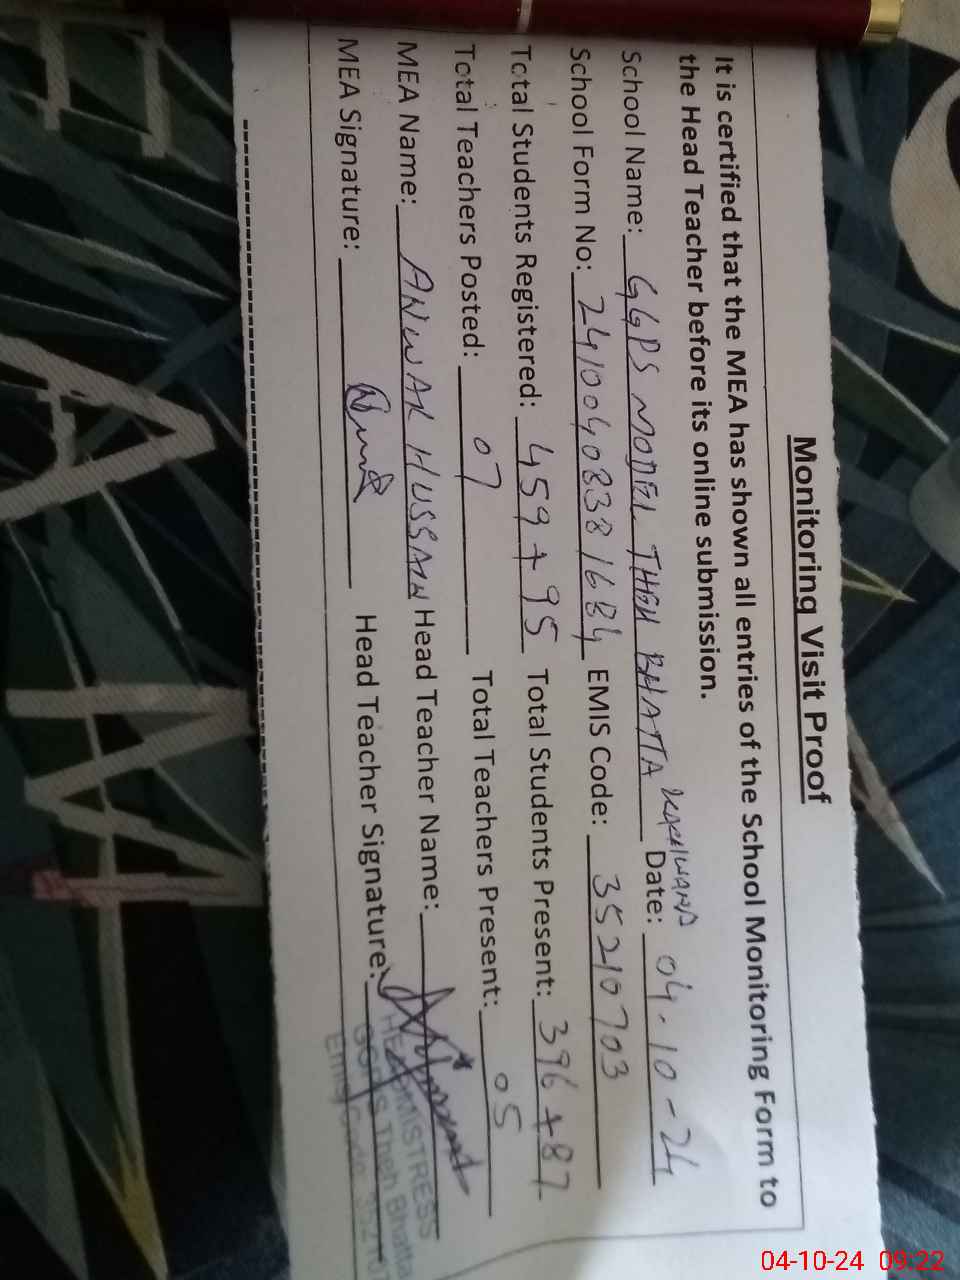 Monitoring Visit Proof
It is certified that the MEA has shown all entries of the School Monitoring Form to
the Head Teacher before its online submission.
School Name: GGPS MODEL THEH BHATTA Date: 04-10-24
School Form No: 24100408381684 EMIS Code: 35210703
Total Students Registered: 459+95 Total Students Present: 396+87
Total Teachers Posted: 07 Total Teachers Present: 05
MEA Name: ANWAR HUSSAIN Head Teacher Name:
MEA Signature: Head Teacher Signature:
HEADMISTRESS
Theh Bhatta
Emis Code
04-10-24 09:22